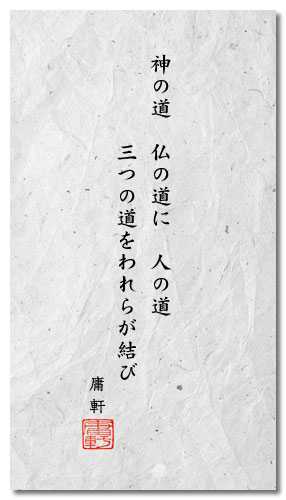 神の道　仏の道に　人の道
三つの道をわれらが結び
庸軒
庸軒